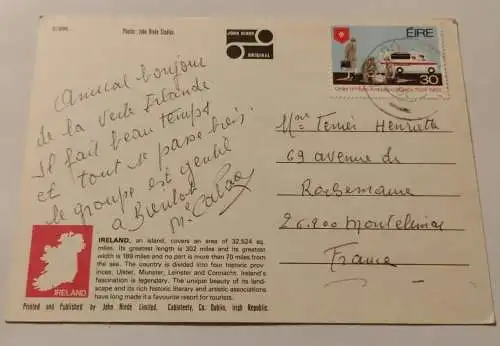 Photo: John Hinde Studios.
JOHN HINDE
ORIGINAL
Amical bonjour
de la verte Irlande
Il fait beau temps
et tout se passe bien,
le groupe est gentil
A Bientôt
ÉIRE
30
Mme Terrier Henriette
69 avenue de
Rochemaure
26200 Montelimar
France
IRELAND, an island, covers an area of 32,524 sq.
miles. Its greatest length is 302 miles and its greatest
width is 189 miles and no part is more than 70 miles from
the sea. The country is divided into four historic prov-
inces, Ulster, Munster, Leinster and Connacht. Ireland's
fascination is legendary. The unique beauty of its land-
scape and its rich historic literary and artistic associations
have long made it a favourite resort for tourists.
IRELAND
Printed and Published by John Hinde Limited, Cabinteely, Co. Dublin, Irish Republic.